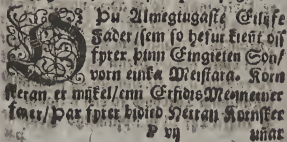 O Þu Almegtugaste Eilijfe
Fader/ sem so hefur kient oss
fyrer þinn Eingieten Son/
vorn einka Meistara. Korn
skeran er mijkel/ enn Erfidis Mennerner
faaer/ Þar fyrer bidied Herran Kornsker
P vij
unar